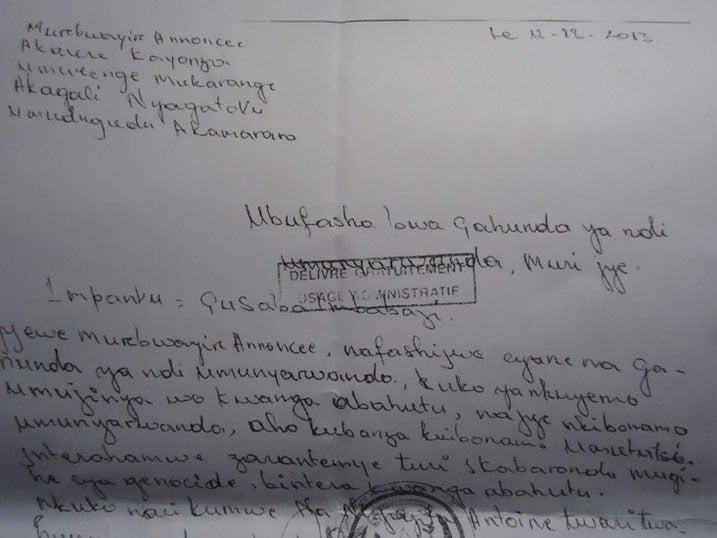 Murebwayire Annoncee
Le 12-12-2013.
Akarere Kayonza
Umurenge Mukarange
Akagali Nyagatovu
Umudugudu Akamarara
Mbufasho bwa Gahunda ya ndi
umunyarwanda, Muri jye.
DELIVRE GRATUITEMENT
USAGE ADMINISTRATIF
Impamvu = Gusaba imbabazi.
Jyewe Murebwayire Annoncee, nafashijwe cyane na Ga-
hunda ya ndi umunyarwanda, kuko yankuyemo
umujinya wo kwanga abahutu, najye nkibonamo
umunyarwanda, aho kubanza kwibonamo
Interahamwe zarantemye turi Kabarondo mugi-
he cya genocide, bintera kwanga abahutu.
Nkuko nari kumwe na Antoine twari twa-